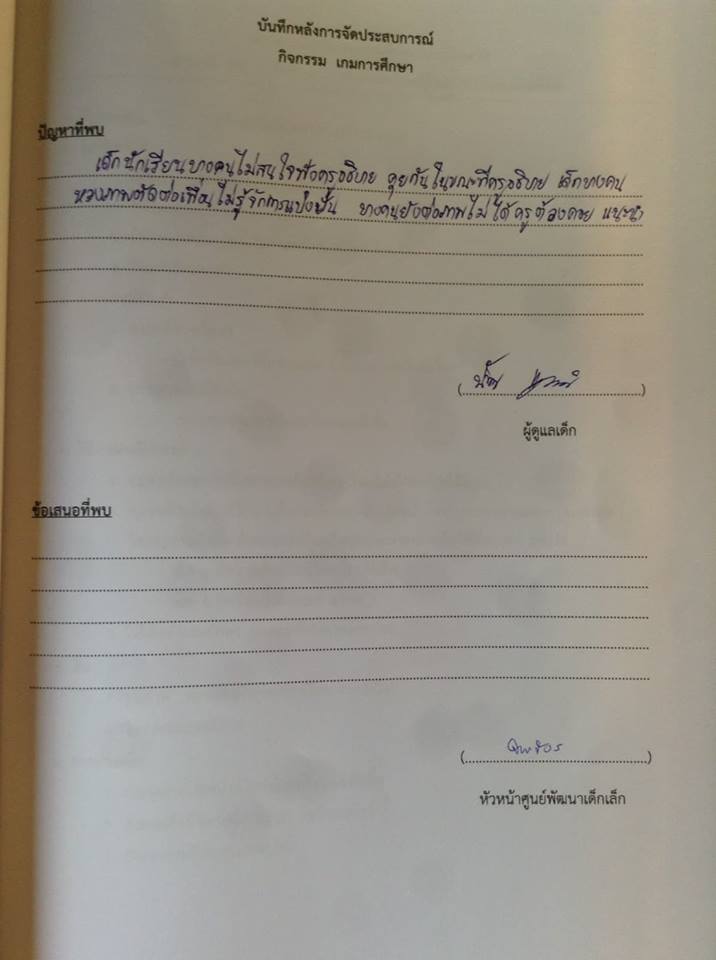 บันทึกหลังการจัดประสบการณ์
กิจกรรม เกมการศึกษา
ปัญหาที่พบ
เด็กนักเรียนบางคนไม่สนใจฟังครูอธิบาย คุยกันในขณะที่ครูอธิบาย เด็กบางคน
หวงภาพตัดต่อเพื่อนไม่รู้จักการแบ่งปัน บางคนยังต่อภาพไม่ได้ครูต้องคอย แนะนำ
(..............................)
ผู้ดูแลเด็ก
ข้อเสนอที่พบ
(..............................)
หัวหน้าศูนย์พัฒนาเด็กเล็ก